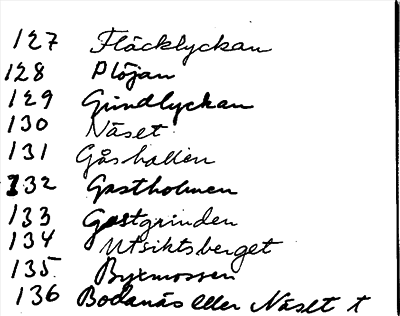 127 Fläcklyckan
128 Plöjan
129 Grindlyckan
130 Näset
131 Gåshallen
132 Gastholmen
133 Gastgrinden
134 Utsiktsberget
135 Byxmossen
136 Bodanäs eller Näset t